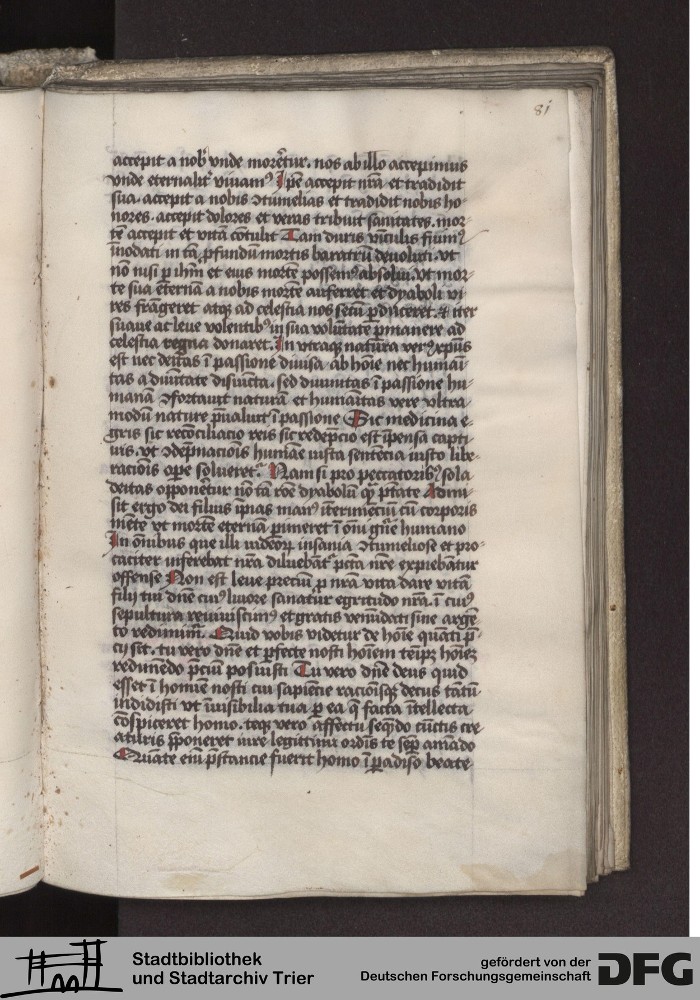 81
accepit a nob' vnde morẽtur. nos ab illo accepimus
vnde eternalit' viuam9 Ipẽ accepit nr̃a et tradidit
sua. accepit a nobis ɔtumelias et tradidit nobis ho-
nores. accepit dolores et veras tribuit sanitates. mor-
tẽ accepit et vitã cõtulit Tam duris vĩculis fuim9
in tã pfundũ mortis baratrũ deuoluti. vt
nõ nisi p ihm̃ et eius mortẽ possem9 absolui. vt mor-
te sua eternã a nobis mortẽ auferret et dyaboli vi-
res frãgeret atq ad celestia nos secũ pduceret. et iter
suaue ac leue volentib9 in sua volũtate pmanere ad
celestia regna donaret. In vtraq natura ver9 xpus
est nec deitas ĩ passione diuisa ab hoĩe nec humani-
tas a diuĩtate disiũcta. sed diuinitas ĩ passione hu-
manã ɔfortauit naturã et humanitas vere vltra
modũ nature pualuit ĩ passione Sic medicina e-
gris sic reconciliacio reis sic redẽpcio est ĩpensa capti-
uis. vt ɔdẽpnacionis humane iusta sentẽcia iusto libe-
racionis ope solueret' Nam si pro peccatorib9 sola
deitas opponeretur nõ tã rõe dyabolũ q̃ ptãte Admi-
sit ergo dei filius ĩpias man9 cũ corporis
vt mortẽ eternã pimeret ĩ omĩ gñe humano
In omĩbus que illi iudeorũ insania ɔtumeliose et pro-
caciter inferebat nr̃a diluebãt' pctã nr̃e expiebãtur
offense Non est leue preciũ p nr̃a vita dare vitã
filij tui dñe cui9 liuore sanatur egritudo nr̃a. ĩ cui9
sepultura reuiuiscim9 et gratis venũdati sine argẽ-
to redimim'. Quid vobis videtur de hoĩe quãti p-
cij sit. tu vero dñe et pfecte nosti hoĩem
redimẽdo pciũ posuisti Tu vero dñe deus quid
esset ĩ homine nosti cui sapiẽcie racionisq decus tãtũ
indidisti vt ĩuisibilia tua p ea q̃ facta ĩtellecta
cõspiceret homo. teq vero affectu cũctis cre-
aturis pponeret iure legittimi ordĩs te sep amãdo
Quãte eim pstancie fuerit homo ĩ padiso beate
Stadtbibliothek
und Stadtarchiv Trier
gefördert von der
Deutschen Forschungsgemeinschaft
DFG